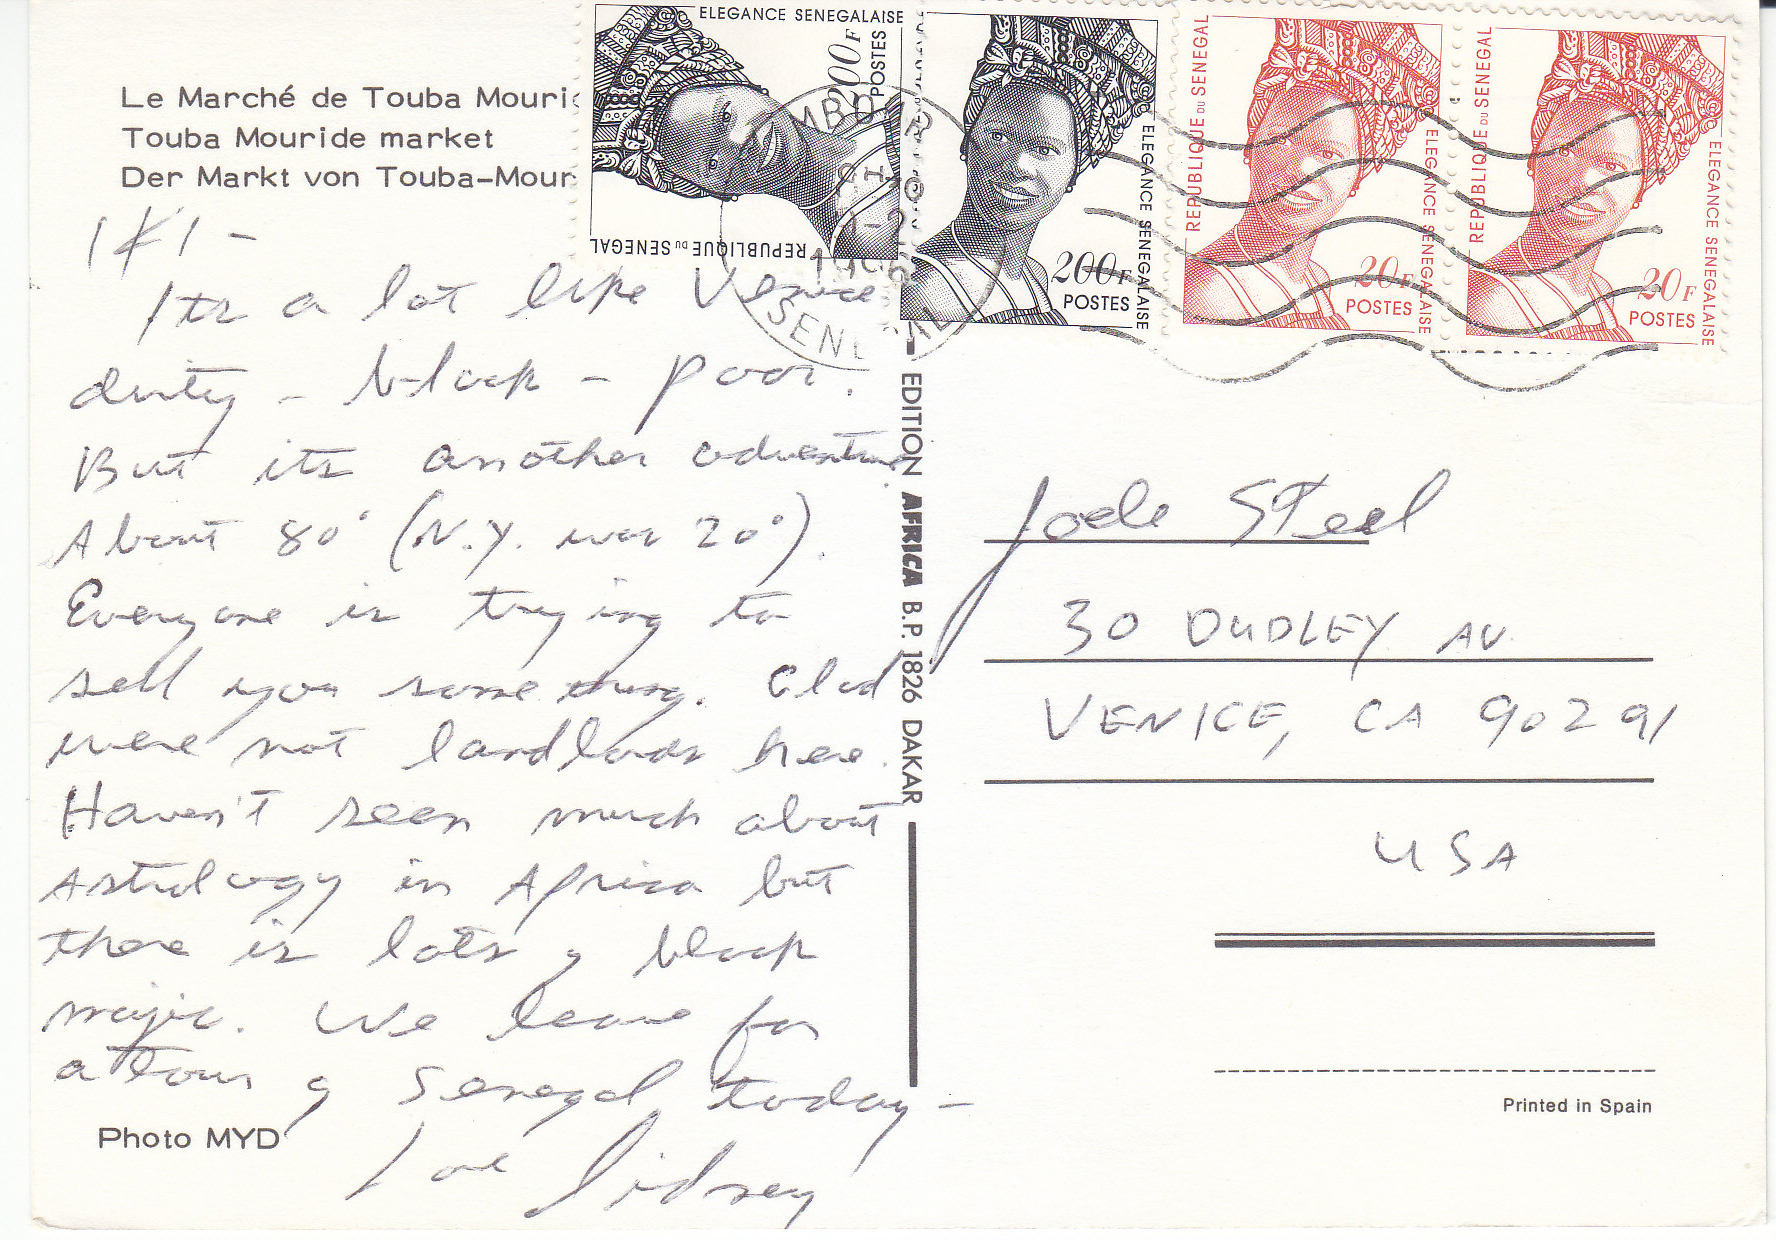 Le Marché de Touba Mouri
Touba Mouride market
Der Markt von Touba-Mour
ELEGANCE SENEGALAISE
200F
POSTES
REPUBLIQUE DU SENEGAL
ELEGANCE SENEGALAISE
200F
POSTES
REPUBLIQUE DU SENEGAL
ELEGANCE SENEGALAISE
20F
POSTES
REPUBLIQUE DU SENEGAL
ELEGANCE SENEGALAISE
20F
POSTES
SENEGAL
Its a lot like Venice
dirty - black - poor.
But its another adventure
About 80° (N.Y. was 20°).
Everyone is trying to
sell you something. Glad
were not landlords here.
Haven't seen much about
Astrology in Africa but
there is lots of black
majic. We leave for
a tour of Senegal today -
Love Sidney
Photo MYD
EDITION AFRICA B.P. 1826 DAKAR
Joele Steel
30 DUDLEY AV.
VENICE, CA 90291
USA
Printed in Spain